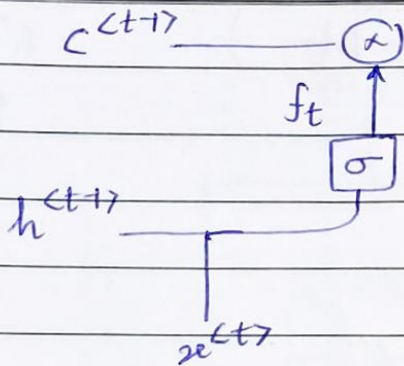 c<t-1> ×
f_t
σ
h<t-1>
x<t>